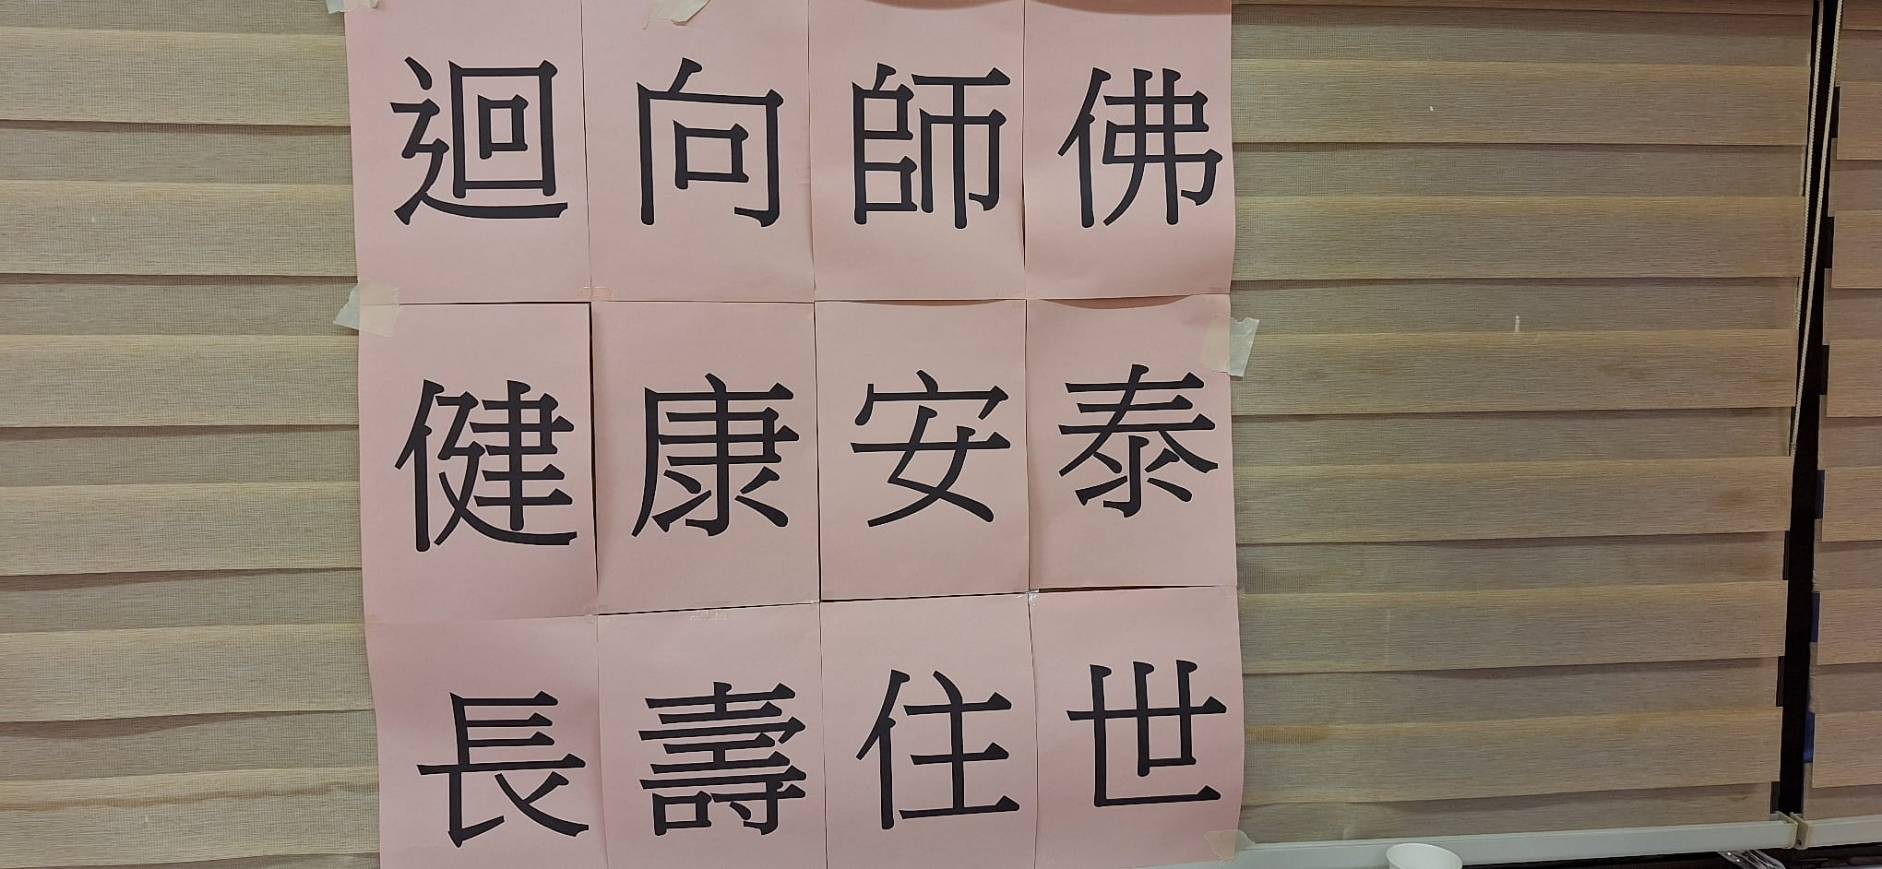 迴向師佛
健康安泰
長壽住世